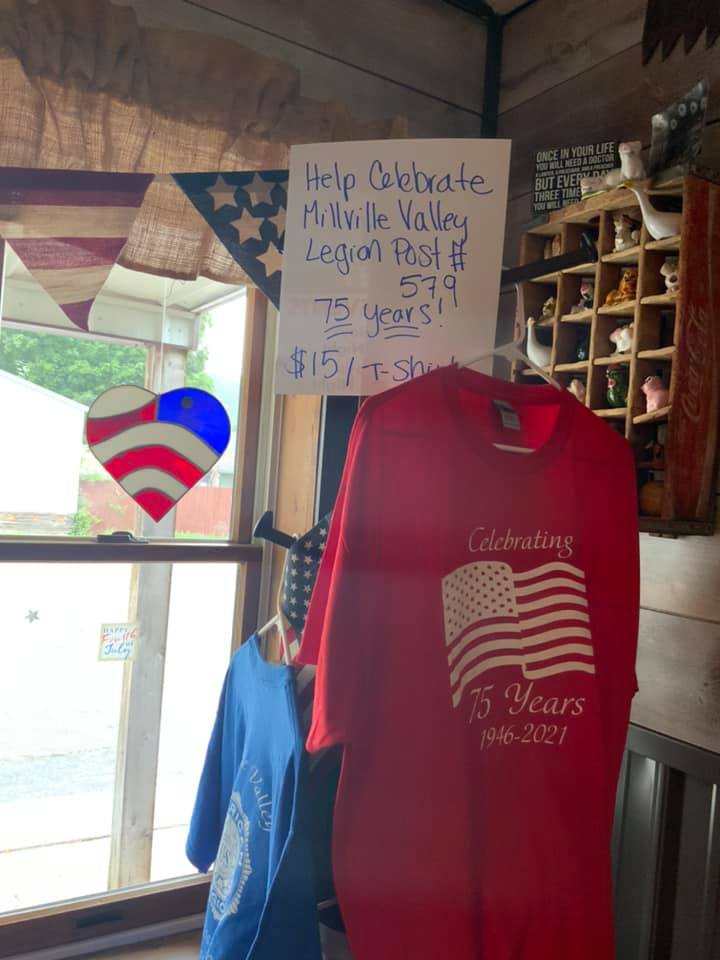 Help Celebrate
Millville Valley
Legion Post #
579
75 years!
$15/T-Shi
ONCE IN YOUR LIFE
YOU WILL NEED A DOCTOR
A LAWYER, A POLICEMAN, AND A PREACHER
BUT EVERY DAY
THREE TIME
YOU WILL NEED
Coca-Cola
Celebrating
75 Years
1946-2021
HAPPY
Fourth
July
Valley